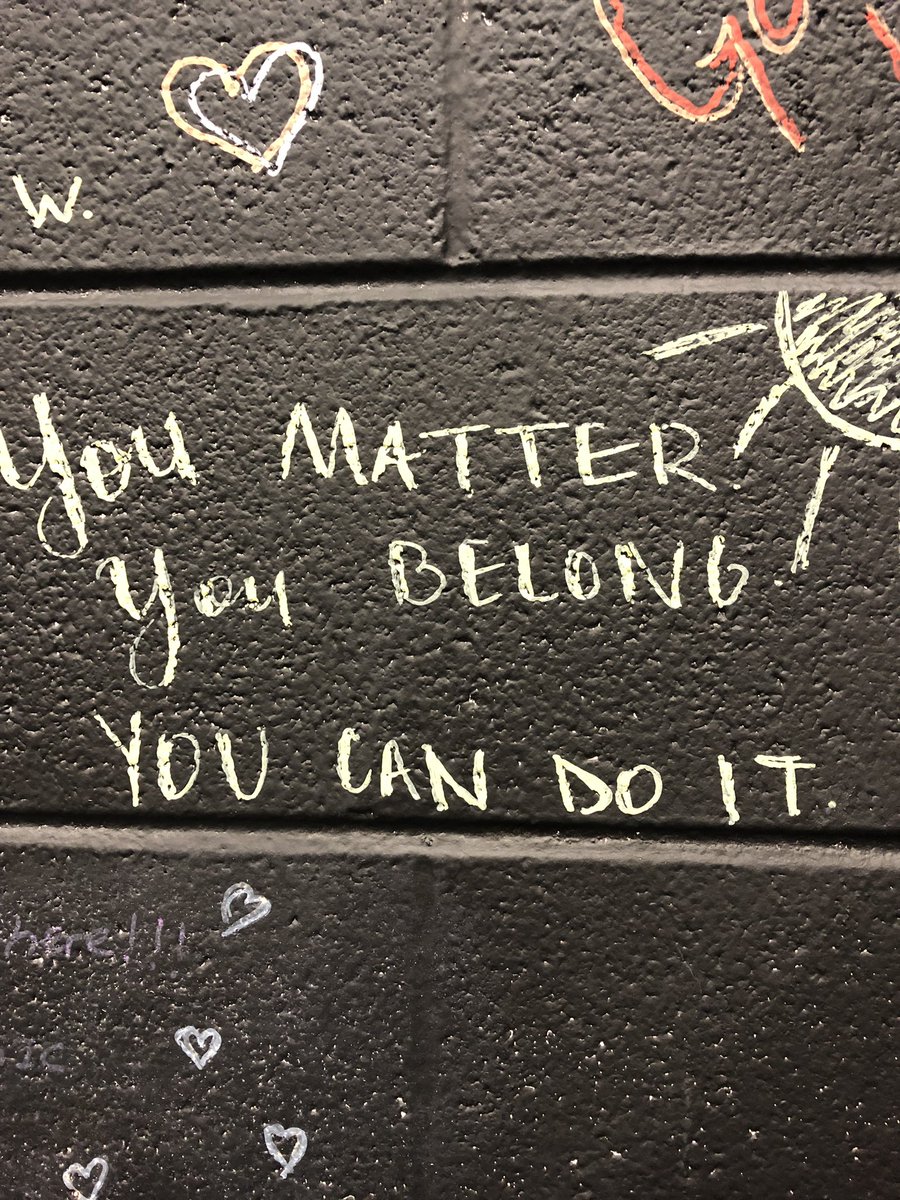 W.
You MATTER.
You BELONG.
YOU CAN DO IT.
here!!!